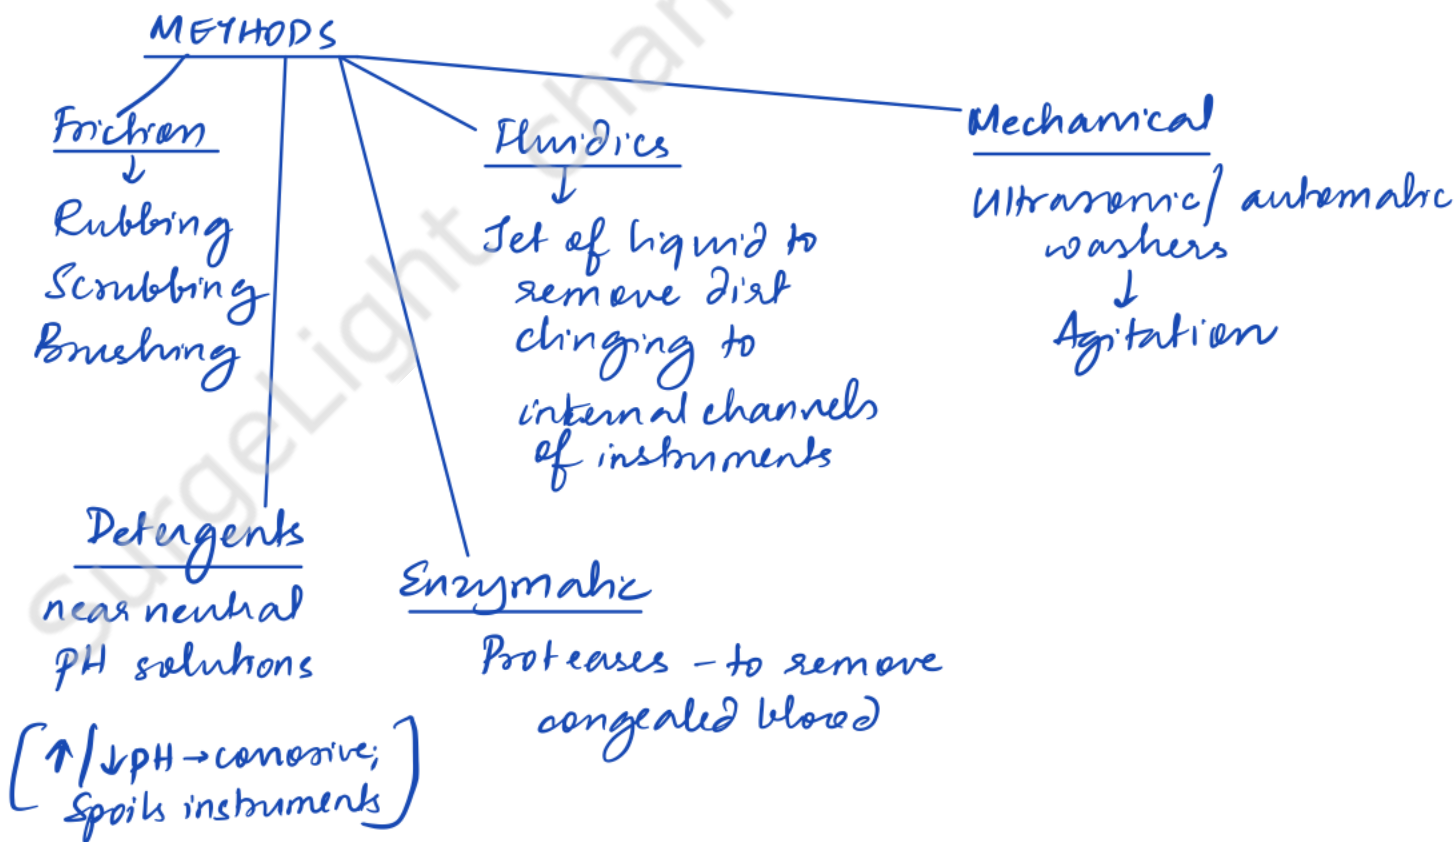 METHODS
Friction
↓
Rubbing
Scrubbing
Brushing
Detergents
near neutral
pH solutions
[↑/↓pH → corrosive;
Spoils instruments]
Enzymatic
Proteases - to remove
congealed blood
Fluidics
↓
Jet of liquid to
remove dirt
clinging to
internal channels
of instruments
Mechanical
Ultrasonic/ automatic
washers
↓
Agitation
SurgeLight chan